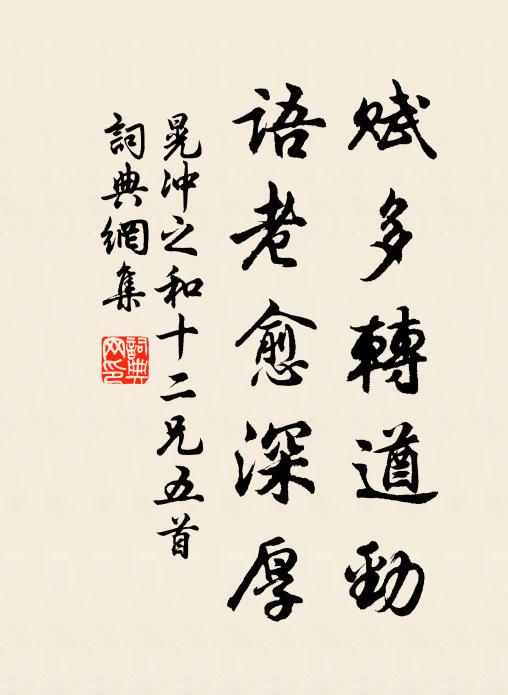 賦多轉遒勁
語老愈深厚
晁冲之和十二兄五首
詞典網集
詞典网印